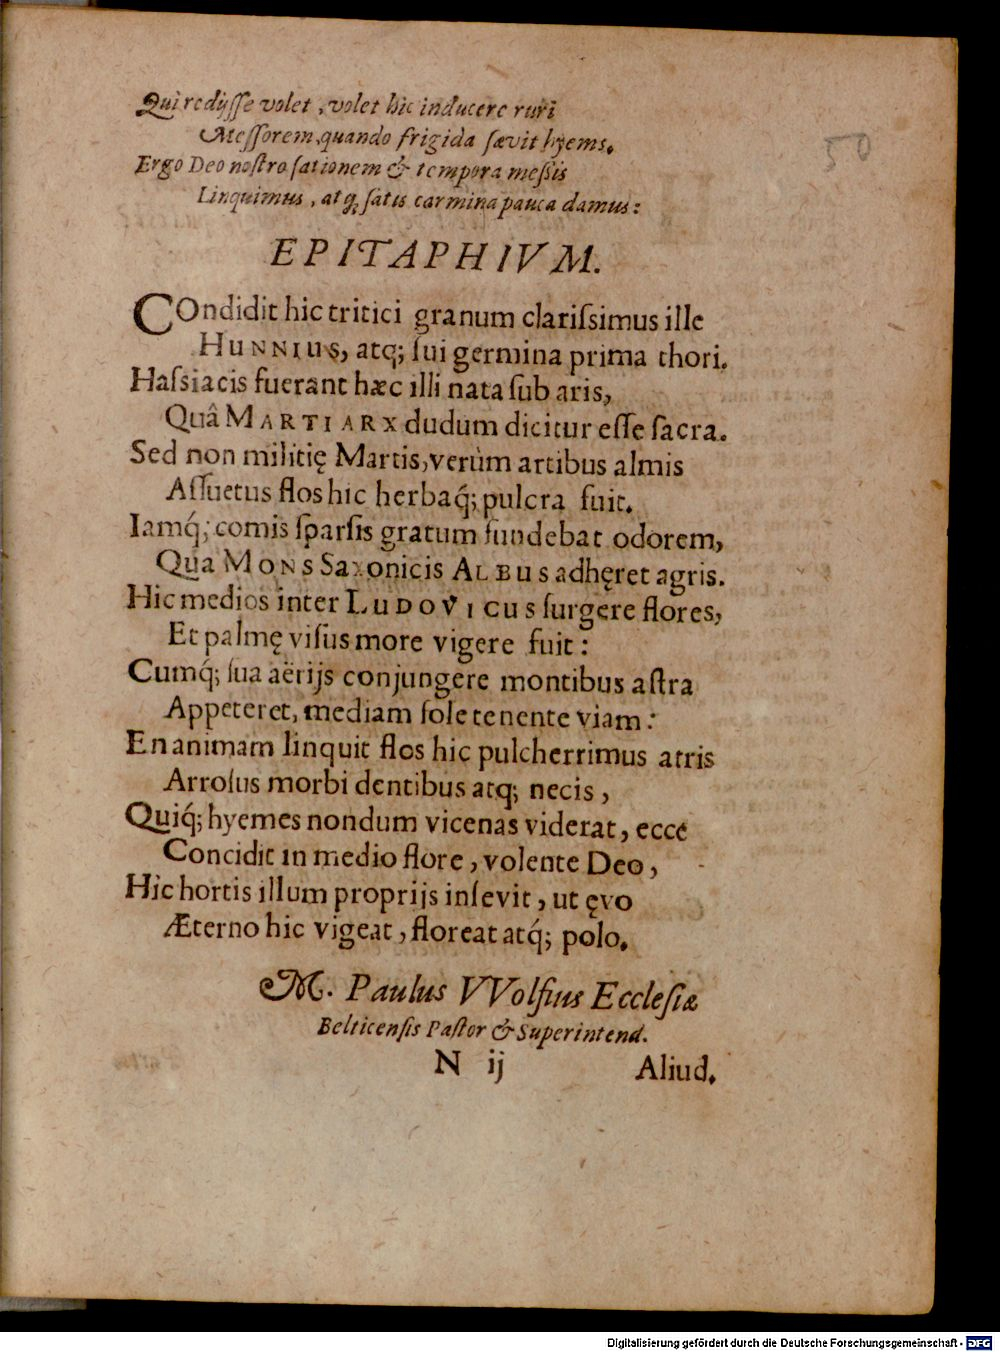 Qui redijſſe volet, volet hic inducere ruri
Meſſorem, quando frigida ſævit hyems.
Ergo Deo noſtro ſationem & tempora meſsis
Linquimus, atq; ſatis carmina pauca damus:
50
EPITAPHIVM.
COndidit hic tritici granum clariſsimus ille
HUNNIUS, atq; ſui germina prima thori.
Haſsiacis fuerant hæc illi nata ſub aris,
Quâ MARTI ARX dudum dicitur eſſe ſacra.
Sed non militię Martis, verùm artibus almis
Aſſuetus flos hic herbaq́; pulcra fuit.
Iamq́; comis ſparſis gratum fundebat odorem,
Quá MONS Saxonicis ALBUS adhęret agris.
Hic medios inter LUDOVICUS ſurgere flores,
Et palmę viſus more vigere fuit:
Cumq́; ſua aërijs conjungere montibus aſtra
Appeteret, mediam ſole tenente viam:
En animam linquit flos hic pulcherrimus atris
Arroſus morbi dentibus atq; necis,
Quiq́; hyemes nondum vicenas viderat, ecce
Concidit in medio flore, volente Deo,
Hic hortis illum proprijs inſevit, ut ęvo
Æterno hic vigeat, floreat atq́; polo.
M. Paulus VVolfius Eccleſiæ
Belticenſis Paſtor & Superintend.
N ij Aliud.
Digitalisierung gefördert durch die Deutsche Forschungsgemeinschaft - DFG